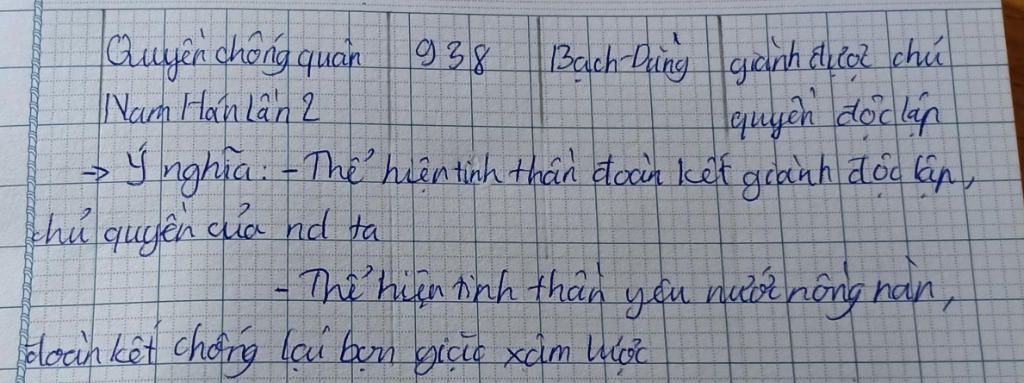 Quyền chống quân 938 Bạch-Dùng giành được chủ
Nam Hán lần 2 quyền độc lập
→ Ý nghĩa: - Thể hiện tinh thần đoàn kết giành độc lập,
chủ quyền của nd ta
- Thể hiện tinh thần yêu nước nồng nàn,
đoàn kết chống lại bọn giặc xâm lược